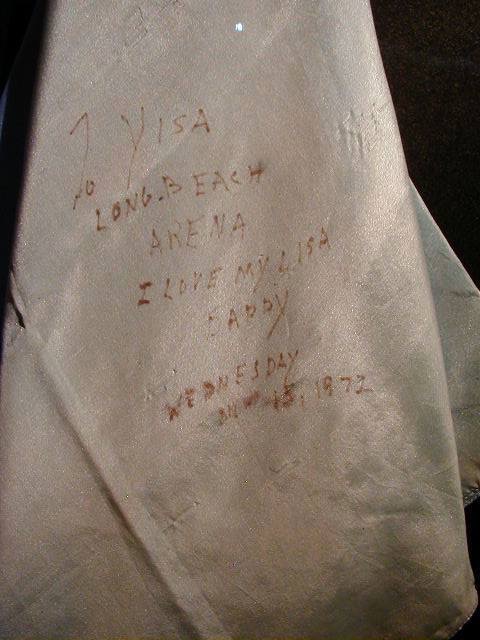 TO LISA
LONG. BEACH
ARENA
I LOVE MY LISA
DADDY
WEDNESDAY
15, 1972